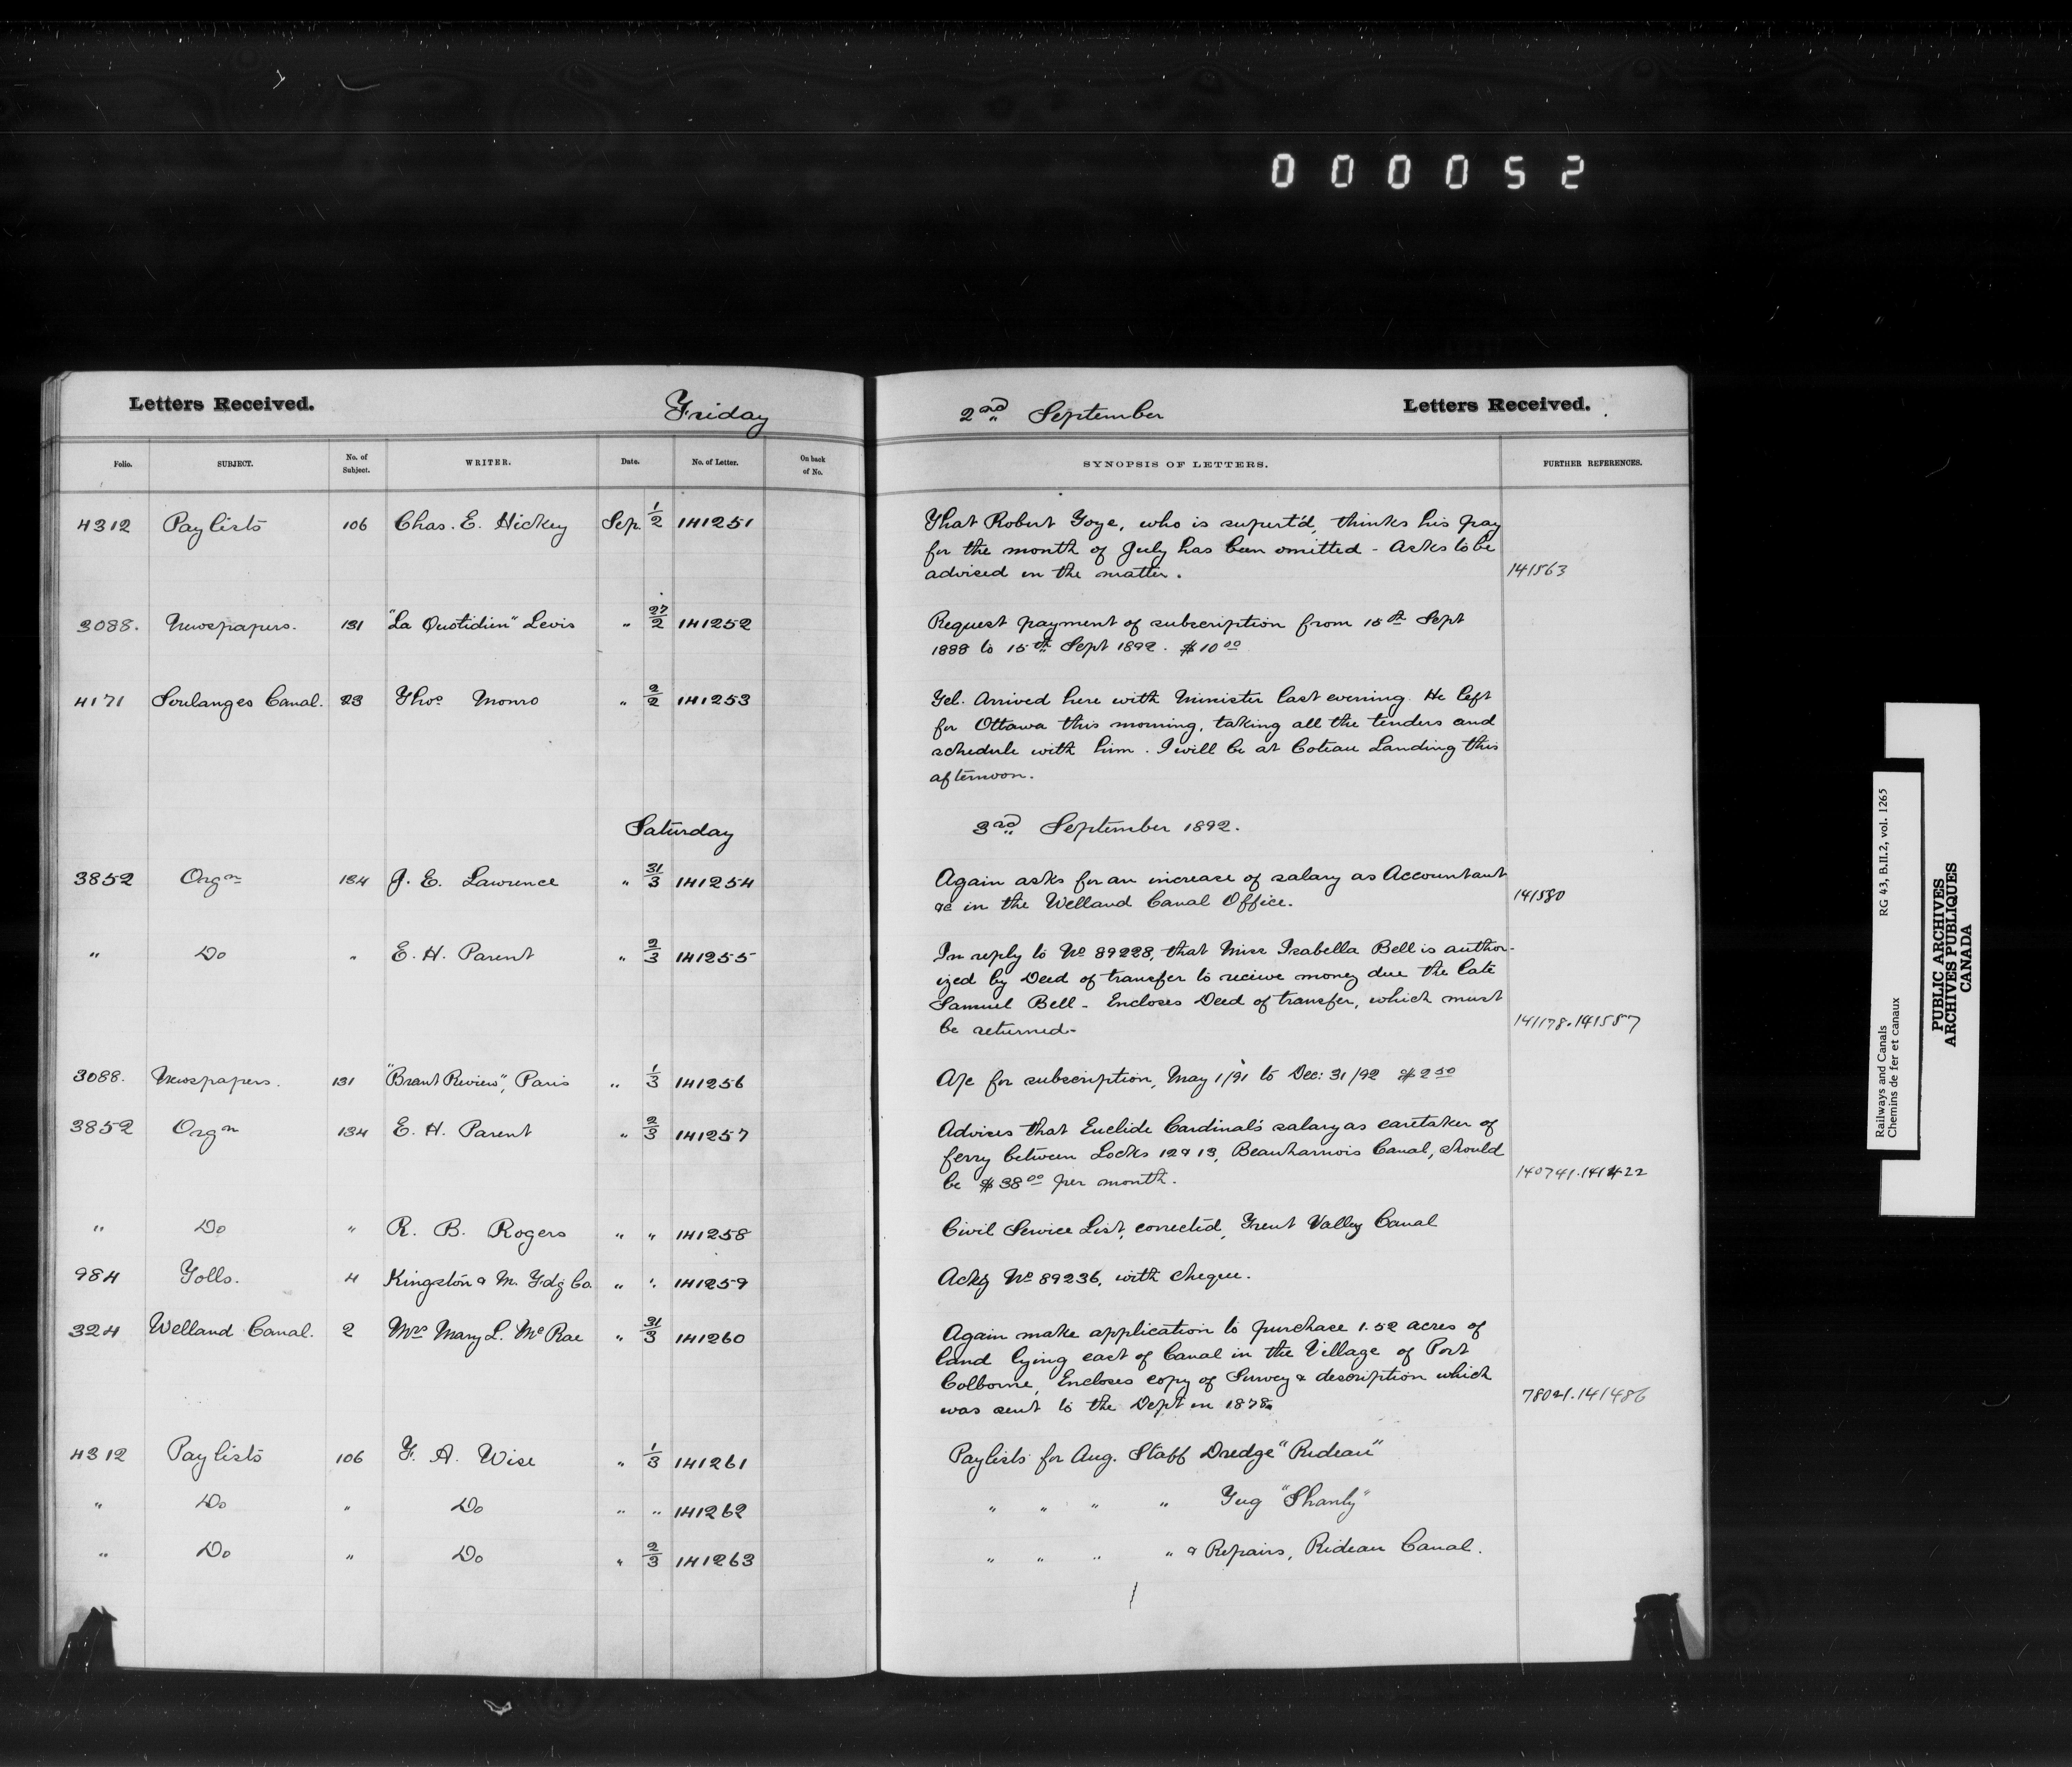 0 0 0 0 5 2
Letters Received.
Friday
2nd September
Letters Received.
Folio.
SUBJECT.
No. of Subject.
WRITER.
Date.
No. of Letter.
On back of No.
SYNOPSIS OF LETTERS.
FURTHER REFERENCES.
4312 Paylists 106 Chas. E. Hickey Sep. 1/2 141251
That Robert Goye, who is supert'd, thinks his pay
for the month of July has been omitted - Asks to be
advised in the matter.
141563
3088. Newspapers. 131 "La Quotidien" Levis " 27/2 141252
Request payment of subscription from 15th Sept
1888 to 15th Sept 1892. $10 00
4171 Soulanges Canal. 23 Thos Monro " 2/2 141253
Tel. Arrived here with Minister last evening. He left
for Ottawa this morning, taking all the tenders and
schedule with him. I will be at Coteau Landing this
afternoon.
Saturday
3rd September 1892.
3852 Orgn 134 J. E. Lawrence " 31/3 141254
Again asks for an increase of salary as Accountant
&c in the Welland Canal Office.
141580
" Do " E. H. Parent " 2/3 141255
In reply to No 89228, that Miss Isabella Bell is author-
ized by Deed of transfer to recieve money due the late
Samuel Bell - Encloses Deed of transfer, which must
be returned-
141178.141587
3088. Newspapers. 131 "Brant Review", Paris " 1/3 141256
A/c for subscription, May 1/91 to Dec: 31/92 $2 50
3852 Orgn 134 E. H. Parent " 2/3 141257
Advises that Euclide Cardinal's salary as caretaker of
ferry between Locks 12 & 13, Beauharnois Canal, should
be $38 00 per month.
140741.141422
" Do " R. B. Rogers " " 141258
Civil Service List, corrected, Trent Valley Canal
984 Tolls. 4 Kingston & M. Fdg Co. " " 141259
Ackg No 89236, with cheque.
324 Welland Canal. 2 Mrs Mary L. McRae " 31/3 141260
Again make application to purchase 1.52 acres of
land lying east of Canal in the Village of Port
Colborne, Encloses copy of Survey & description which
was sent to the Dept in 1878.
78021.141486
4312 Paylists 106 F. A. Wise " 1/3 141261
Paylists for Aug. Staff Dredge "Rideau"
" Do " Do " " 141262
" " " " Tug "Shanly"
" Do " Do " 2/3 141263
" " " " & Repairs, Rideau Canal.
Railways and Canals RG 43, B.II.2, vol. 1265
Chemins de fer et canaux
PUBLIC ARCHIVES
ARCHIVES PUBLIQUES
CANADA